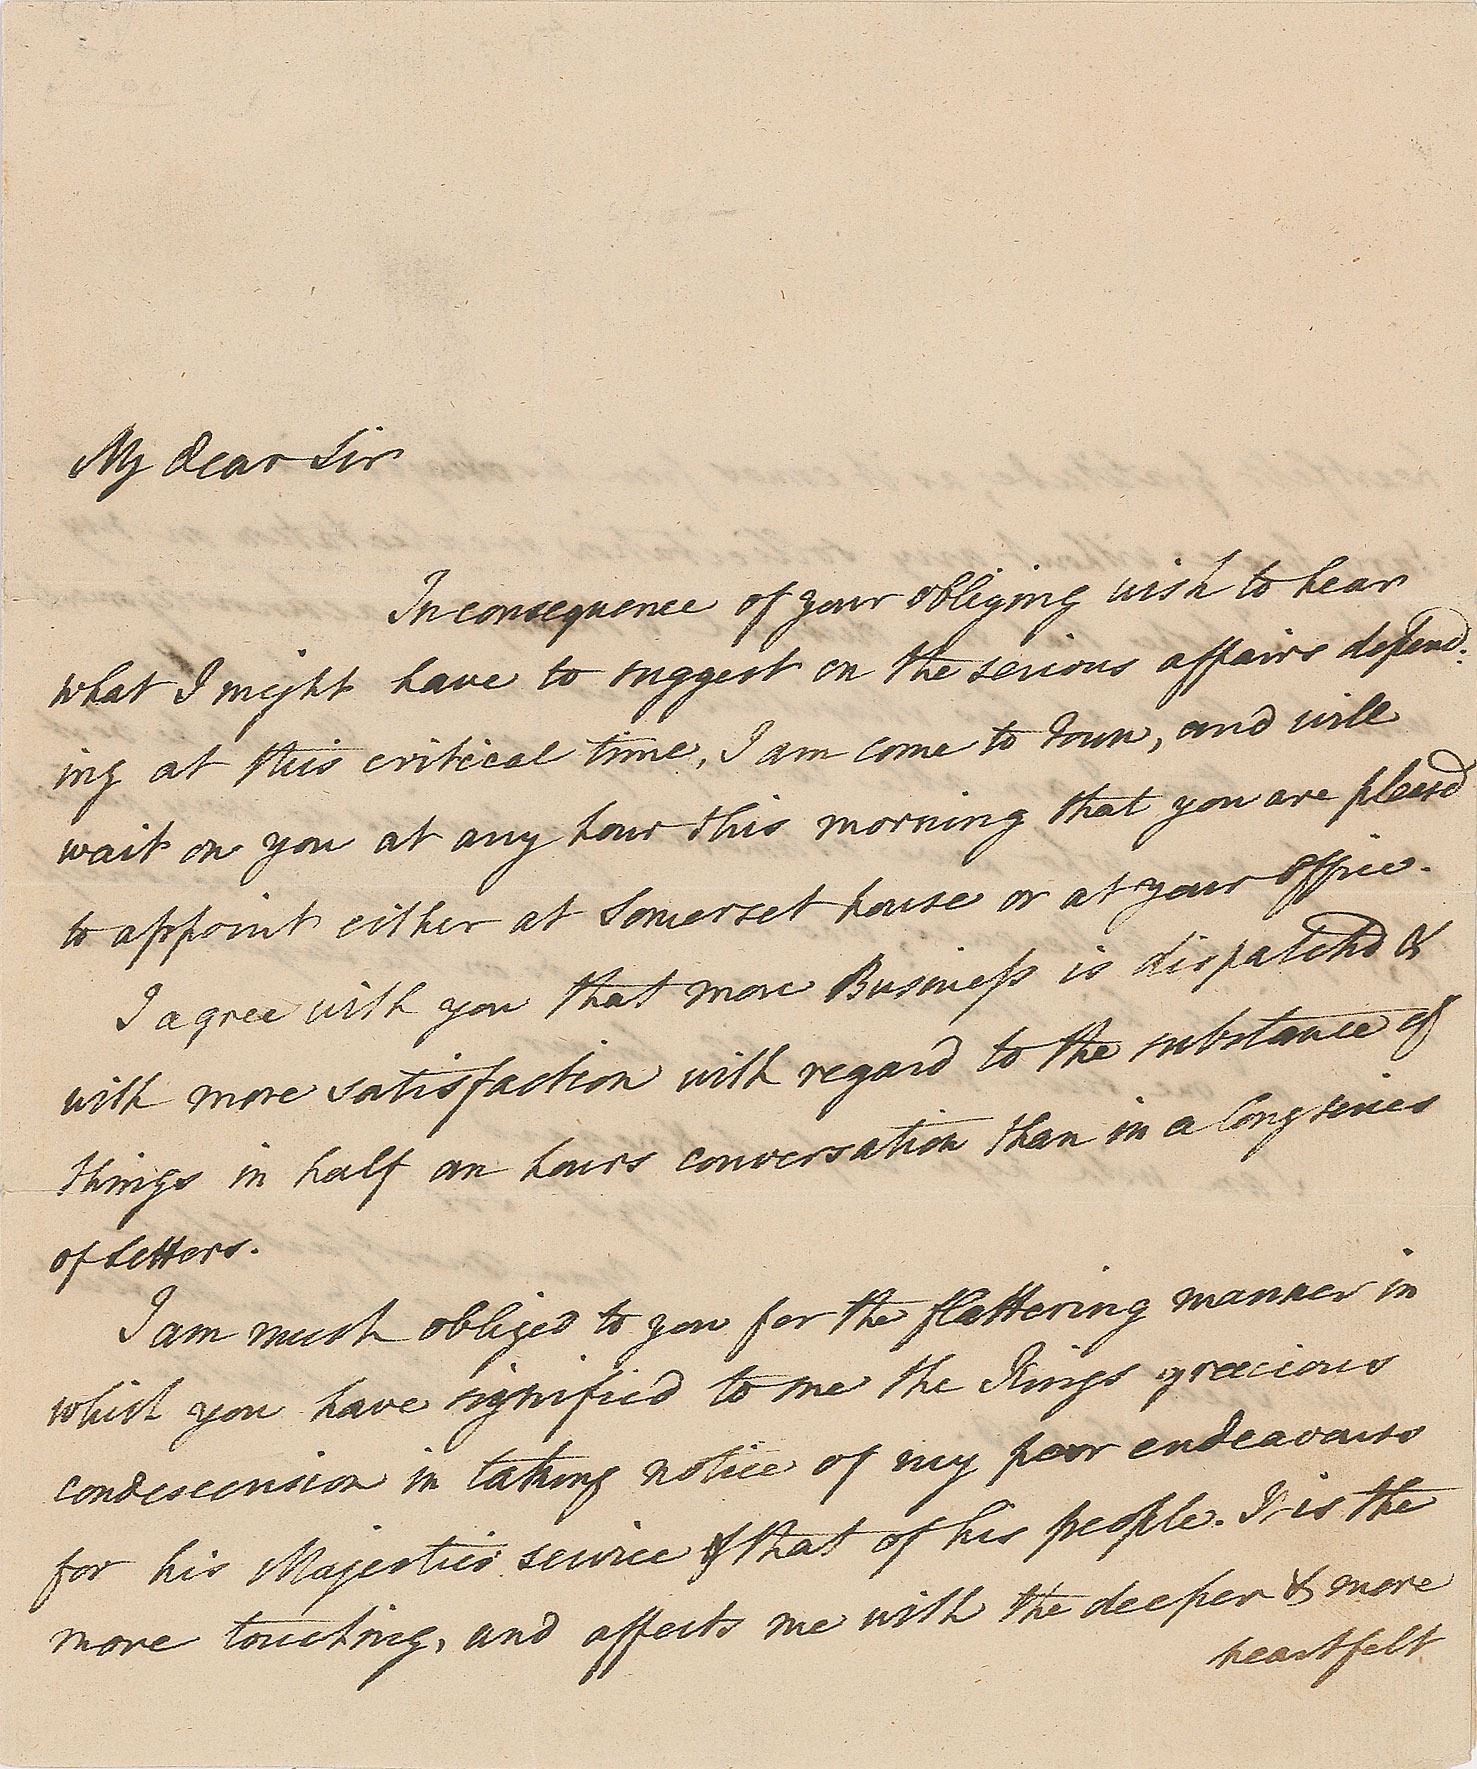 My dear Sir
In consequence of your obliging wish to hear
what I might have to suggest on the serious affairs depend:
ing at this critical time, I am come to town, and will
wait on you at any hour this morning that you are pleasd
to appoint either at Somerset house or at your office.
I agree with you that more Business is dispatchd &
with more satisfaction with regard to the substance of
things in half an hours conversation than in a long series
of letters.
I am much obliged to you for the flattering manner in
which you have signified to me the Kings gracious
condescension in taking notice of my poor endeavours
for his Majesties service & that of his people. It is the
more touching, and affects me with the deeper & more
heartfelt